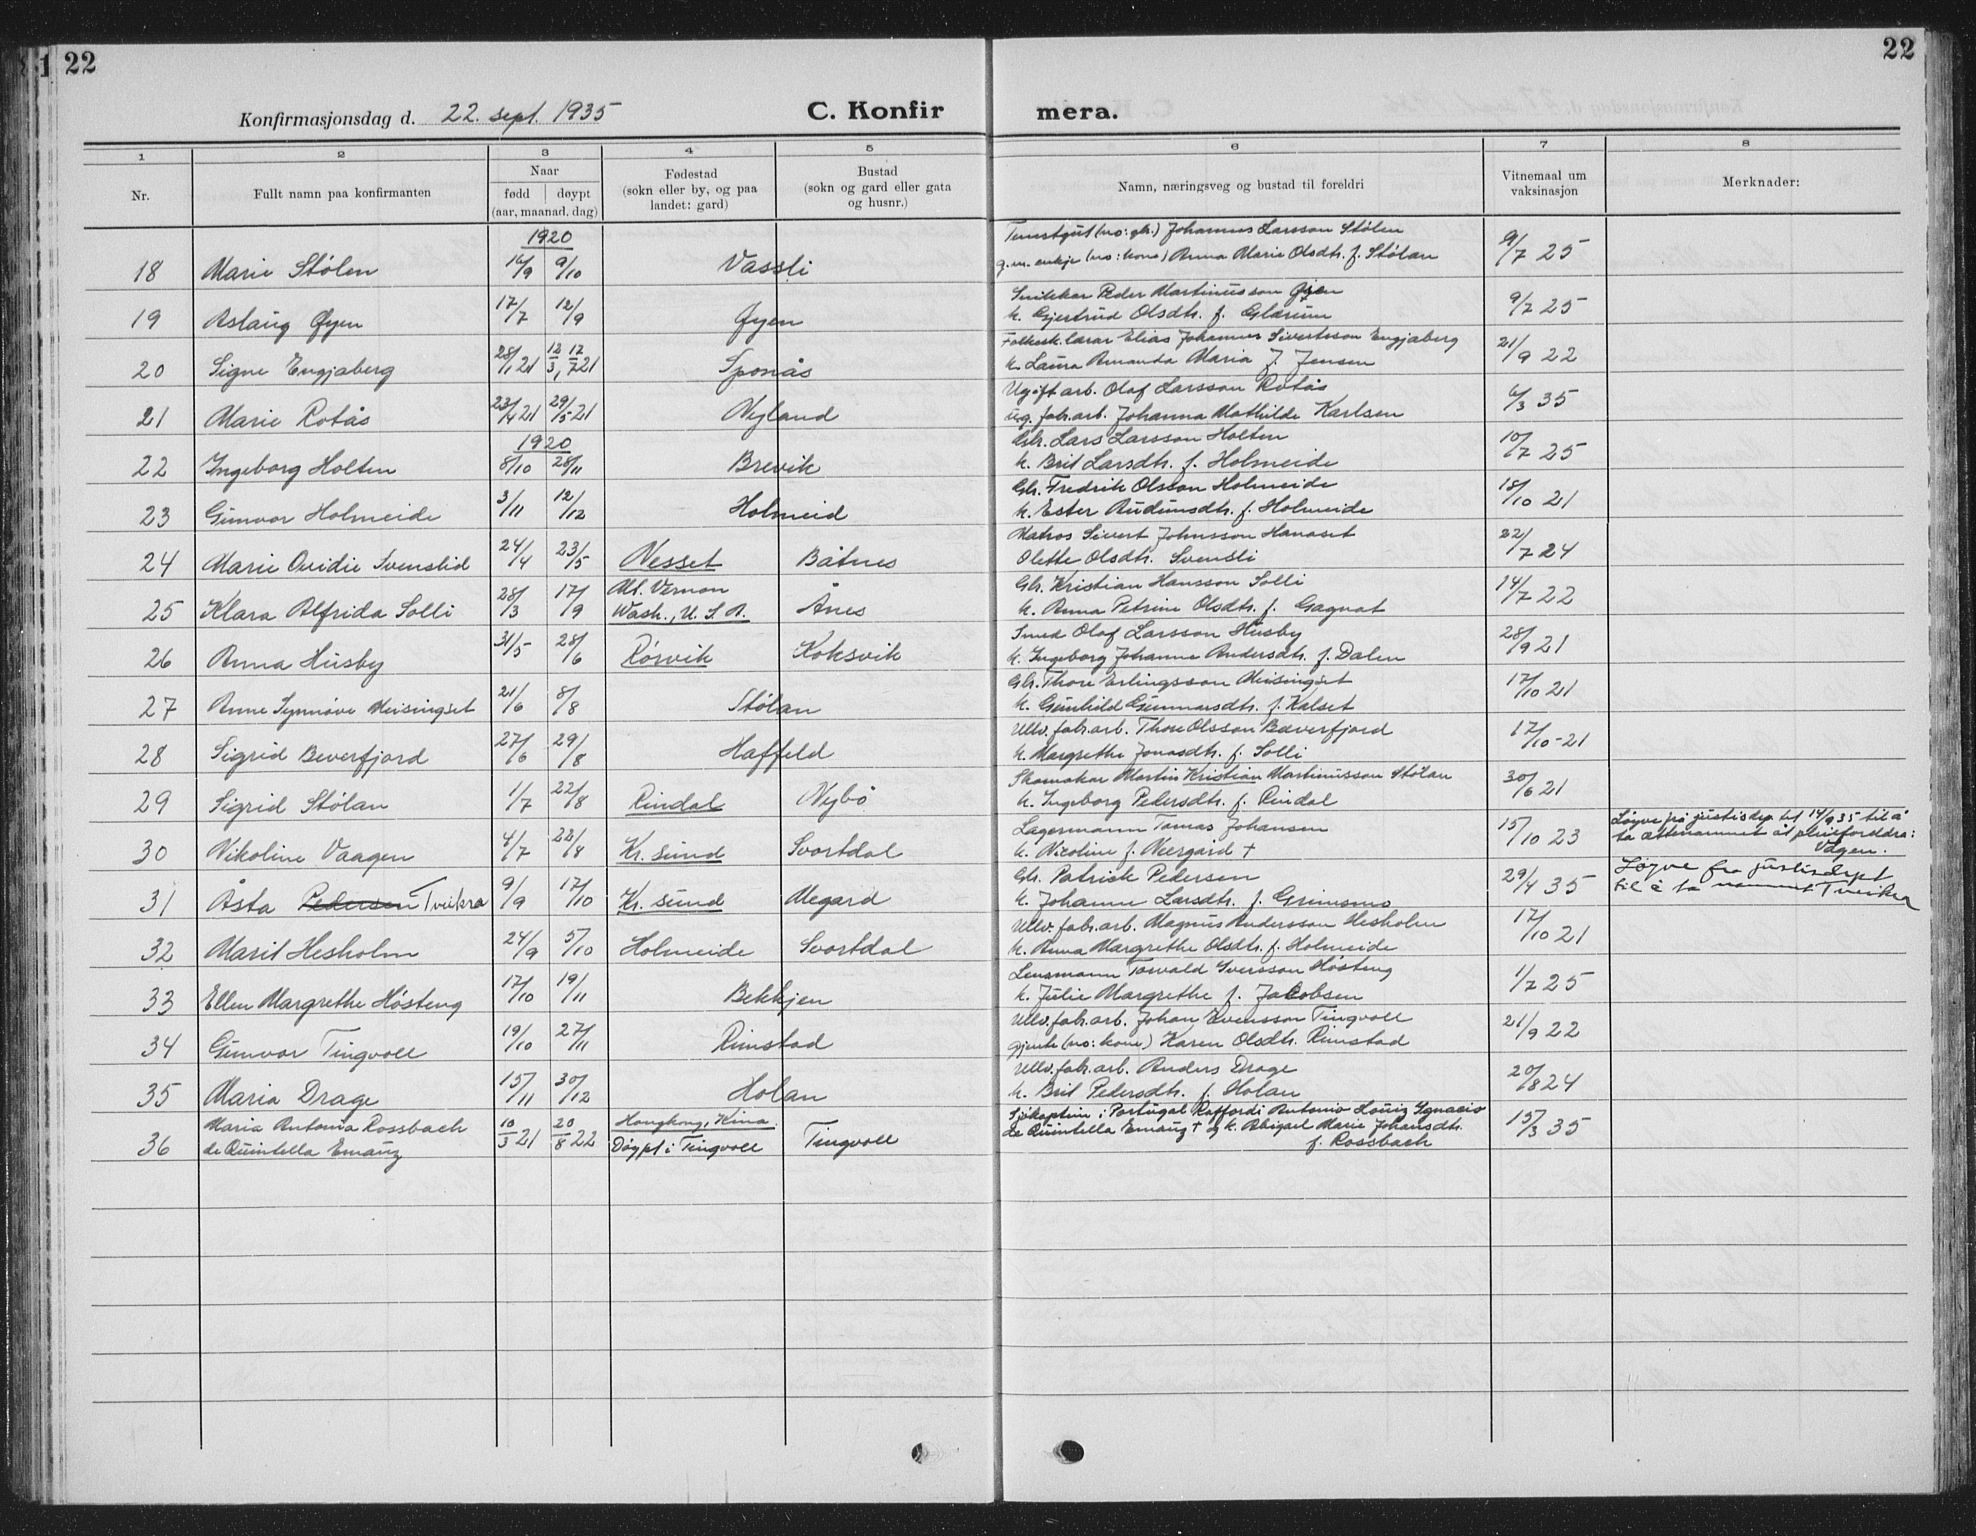 22
22
1
Konfirmasjonsdag d. 22. sept. 1935
C. Konfir mera.
1 2 3 4 5 6 7 8
Nr.
Fullt namn paa konfirmanten
Naar
fødd døypt
(aar, maanad, dag)
Fødestad
(sokn eller by, og paa
landet: gard)
Bustad
(sokn og gard eller gata
og husnr.)
Namn, næringsveg og bustad til foreldri
Vitnemaal um
vaksinasjon
Merknader:
1920
Johannes Larsson Stölen
18 Marie Stölen 16/9 9/10 Vassli g.m. enkje (no: kone) Anna Marie Olsdtr. f. Stölan 9/7 25
Peder Martinusson Øyen
19 Aslaug Øyen 17/7 12/9 Øyen k. Gjertrud Olsdtr. f. Glærum 9/7 25
Folkesk.lærar Elias Johannes Sivertsson Engjaberg
20 Signe Engjaberg 28/1 21 12/3, 17/7 21 Sponås k. Laura Amanda Maria f. Jensen 21/9 22
Ugift arb. Olaf Larsson Rotås
21 Marie Rotås 23/4 21 29/5 21 Nyland ug. fabr.arb. Johanna Mathilde Karlsen 6/3 35
1920
Gbr. Lars Larsson Holten
22 Ingeborg Holten 8/10 28/11 Brevik k. Brit Larsdtr. f. Holmeide 10/7 25
Gbr. Fredrik Olsson Holmeide
23 Gunvor Holmeide 3/11 12/12 Holmeid k. Ester Audunsdtr. f. Holmeide 18/10 21
Matros Sivert Johnsson Hanaset
24 Marie Ovidie Svenslid 24/4 23/5 Nesset Båtnes Olette Olsdtr. Svensli 22/7 24
Mt. Vernon
Gbr. Kristian Hansson Solli
25 Klara Alfrida Solli 28/3 17/9 Wash., U. S. A. Ånes k. Anna Petrine Olsdtr. f. Gagnat 14/7 22
Smed Olaf Larsson Husby
26 Anna Husby 31/5 28/6 Rørvik Koksvik k. Ingeborg Johanne Andersdtr. f. Dalen 28/9 21
Gbr. Thore Erlingsson Meisingset
27 Anne Synnøve Meisingset 21/6 8/8 Stölan k. Gunhild Gunnarsdtr. f. Kalset 17/10 21
Ullv.fabr.arb. Thore Olsson Bæverfjord
28 Sigrid Beverfjord 27/6 29/8 Haffeld k. Margrethe Jonasdtr. f. Solli 17/10-21
Skomakar Martin Kristian Martinusson Stölan
29 Sigrid Stölan 1/7 22/8 Rindal Nybö k. Ingeborg Pedersdtr. f. Rindal 30/6 21
Lagermann Tomas Johansen
30 Nikoline Vaagen 4/7 22/8 Kr. sund Svortdal k. Nicoline f. Neergård † 15/10 23
Löyve frå justisdep. til 14/9 35 til å
ta ættenamnet åt pleieforeldra:
Vågen.
Gbr. Patrick Pedersen
31 Åsta Pedersen Tveikra 9/9 17/10 Kr. sund Megard k. Johanne Larsdtr. f. Grimsmo 29/4 35
Löyve fra justisdept
til å ta namnet Tveikra
Ullv.fabr.arb. Magnus Andersson Hesholm
32 Marit Hesholm 24/9 5/10 Holmeide Svortdal k. Anna Margrethe Olsdtr. f. Holmeide 17/10 21
Lensmann Torvald Iversson Høsteng
33 Ellen Margrethe Høsteng 17/10 19/11 Bekkjen k. Julie Margrethe f. Jakobsen 1/7 25
Ullv.fabr.arb. Johan Evensson Tingvoll
34 Gunvor Tingvoll 19/10 27/11 Rimstad gjente (no: kone) Karen Olsdtr. Rimstad 21/9 22
Ullv.fabr.arb. Anders Drage
35 Maria Drage 15/11 30/12 Holan k. Brit Pedersdtr. f. Holan 20/8 24
Maria Antonia Rossbach Hongkong, Kina Sjökaptein i Portugal Raffordi Antonio Louiz Ignacio
36 de Quintella Emauz 10/3 21 20/8 22 Döypt i Tingvoll Tingvoll de Quintella Emauz † og k. Abigael Marie Johansdtr. 15/3 35
f. Rossbach